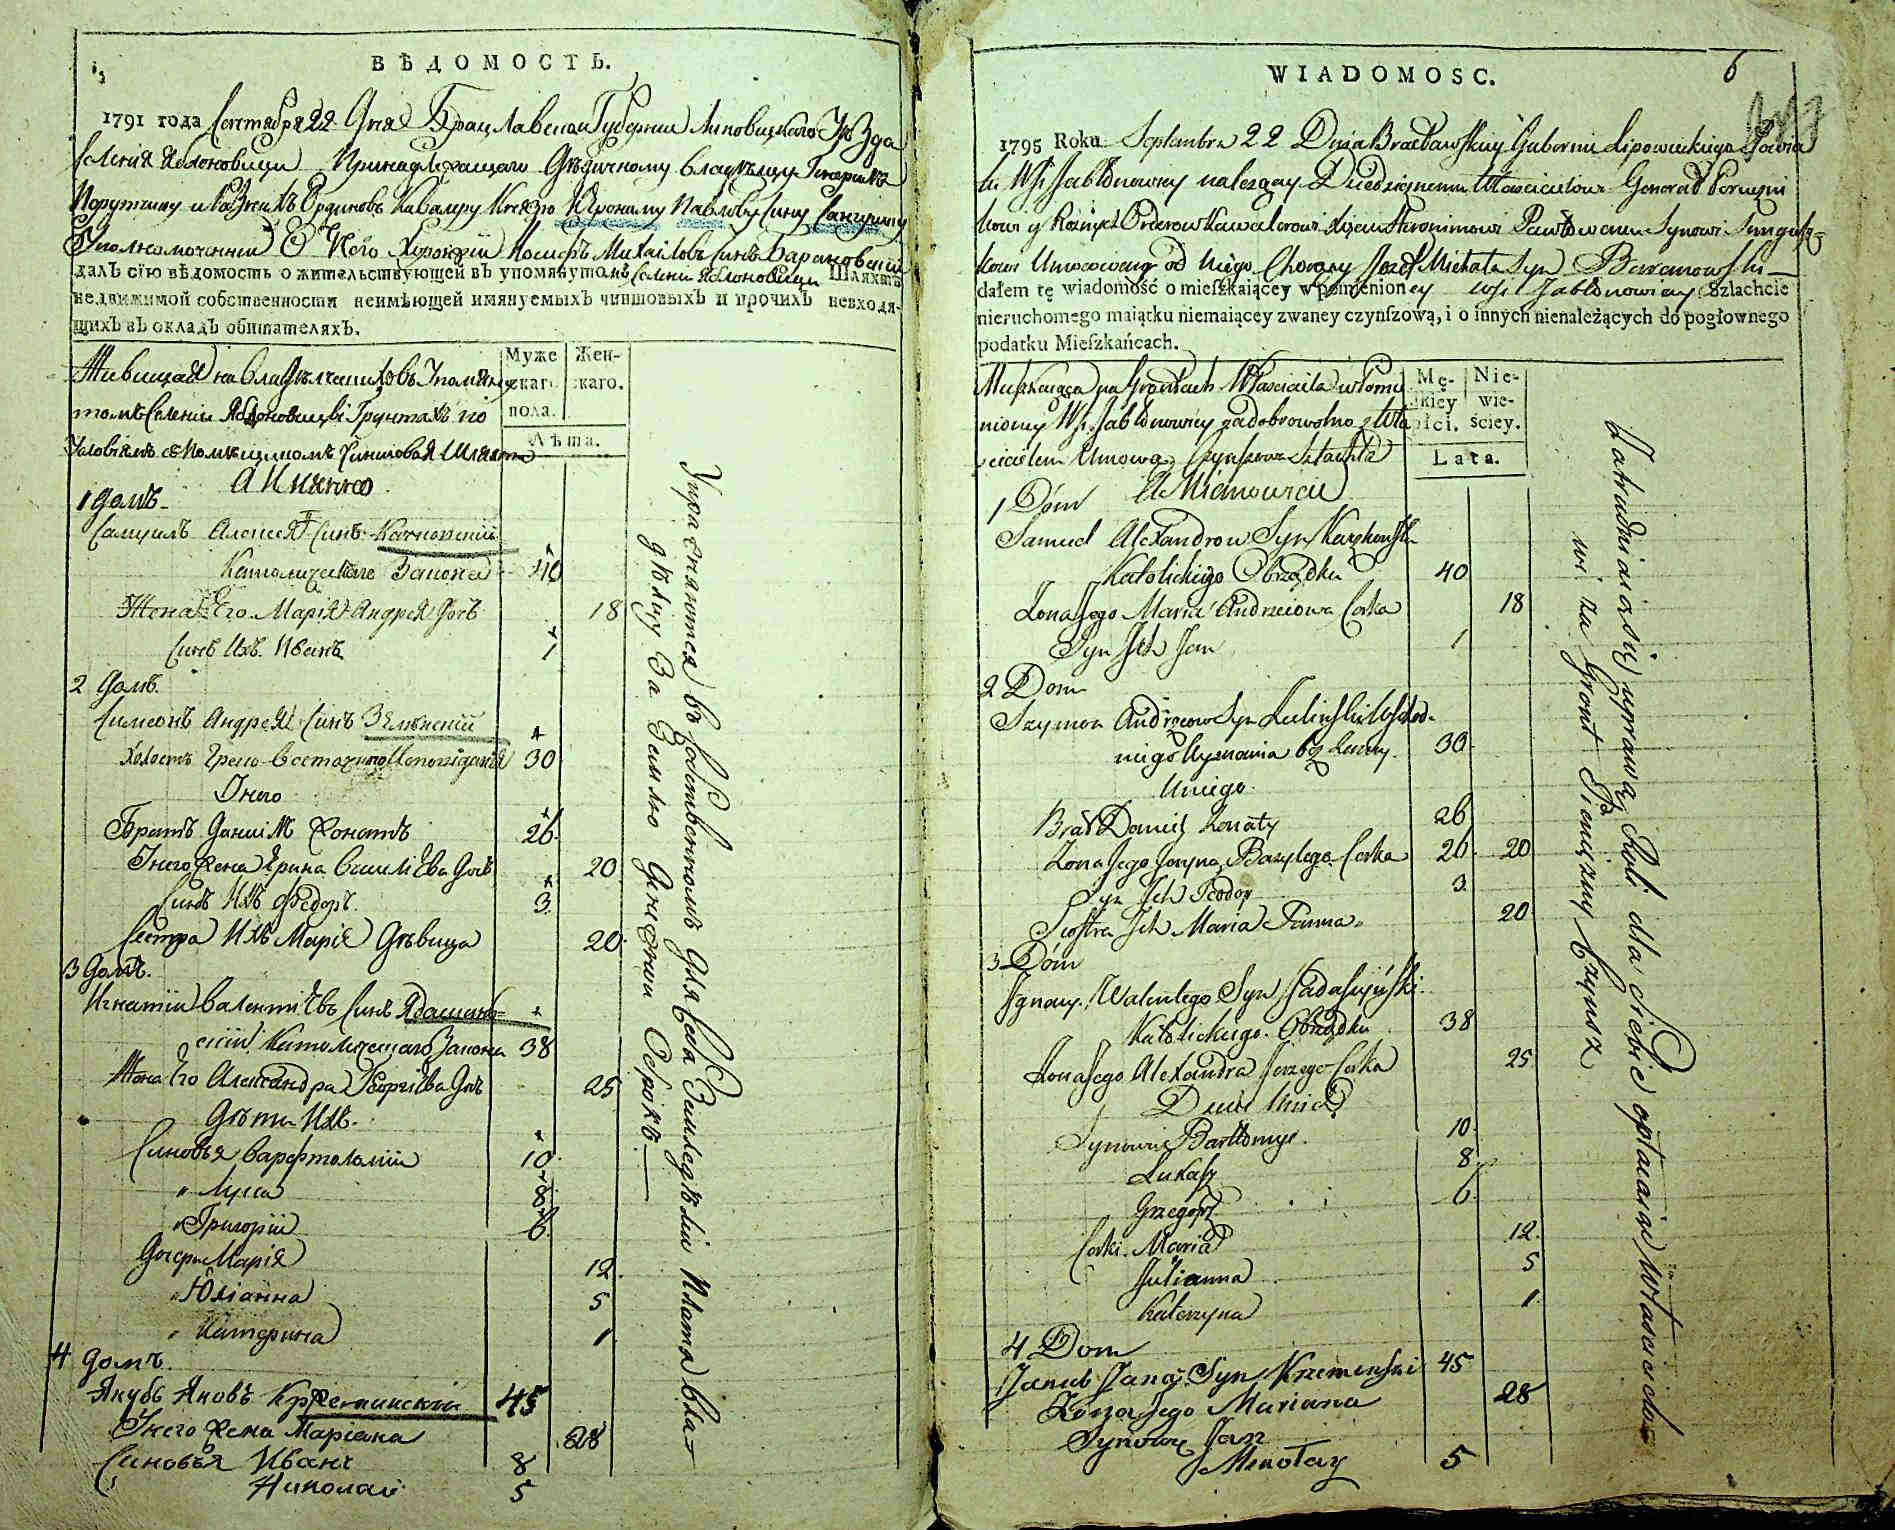 ВѢДОМОСТЬ.
1791 года Сентября 22 Дня Брацлавской Губернии Липовецкого Уѣзда
Селения Яблоновици Принадлежащаго Дѣдичному Владѣльцу Генералъ
Порутчику и Разнихъ Ординовъ Кавалеру Князю Иерониму Павлову Сину Сангушку
Уполномоченний От Него Хоронжій Иосифъ Михаиловъ Синъ Барановский
далъ сїю вѣдомость о жительствующей въ упомянутомъ Селении Яблоновици Шляхтѣ
недвижимой собственности неимѣющей имянуемыхъ чиншовыхъ и прочихъ невходя-
щихъ въ окладъ обитателяхъ.
Живущая на Владѣлческихъ Упомяну-
томъ Селении Яблоновицѣ Грунтахъ по
Условіямъ съ Помещикомъ Чиншовая Шляхта
А Имянно
Муже скаго пола. Жен- скаго.
Лѣта.
1 Домъ
Самуилъ Алексея Синъ Качковский
Католическаго Закона 40
Жена Его Марія Андрея Дочь 18
Синъ Ихъ Иванъ 1
2 Домъ.
Симеонъ Андрея Синъ Зелѣнский
Холостъ Греко-Восточнаго Исповѣданія 30
У него
Братъ Даниил Жонатъ 26
У него Жена Ирина Василіева Дочь 20
Синъ Ихъ Федоръ. 3
Сестра Ихъ Марія Дѣвица 20
3 Домъ.
Игнатий Валентіевъ Синъ Ядашинь-
ский Католическаго Закона 38
Жена Его Александра Георгіева Дочь 25
Дѣти Ихъ.
Синовья Варфоломий 10
" Лука 8
" Григорий 6
Дочери Марія 12
" Юліанна 5
" Катерина 1
4 Домъ.
Якубъ Яновъ Кржеминский 45
У него Жена Маріана 28
Синовья Иванъ 8
Николай 5
Упражняются въ Собственномъ для Себя Земледѣліи Платя Вла-
дѣлцу За Землю Денежни Оброкъ.
WIADOMOSC.
6
1795 Roku Septembra 22 Dnia Bracławskiey Gubernii Lipowieckiego Powia
tu Wsi Jabłonowicy należącey Dziedzicznemu Właścicielowi Generał Porucznikowi
kowi y Roznych Orderow Kawalerowi Xięciu Hieronimowi Pawłowemu Synowi Sangusz-
kowi Umocowany od Niego Chorąży Jozef Michała Syn Baranowski
dałem tę wiadomość o mieſzkaiącey w pomienioney wsi Jabłonowicy Szlachcie
nieruchomego maiątku niemaiącey zwaney czynſzową, i o innych nienależących do pogłownego
podatku Mieſzkańcach.
Mieszkaiąca na Grontach Właściciela w Pomie
nioney Wsi Jabłonowicy za dobrowolną z Wła
scicielem Umową Czynszowa Szlachta
A Mianowicie
Mę- skiey płci. Nie- wie- ściey.
Lata.
1 Dóm
Samuel Alexandrow Syn Kaczkowski
Katolickiego Obrządku 40
Zona Jego Maria Andrzeiowa Corka 18
Syn Ich Jan 1
2 Dom
Szymon Andrzeow Syn Zieliński Wschod-
niego Wyznania bez Zenny. 30
U niego
Brat Daniel Zonaty 26
Zona Jego Jeryna Bazylego Corka 26 20
Syn Ich Teodor 3
Siostra Ich Maria Panna 20
3 Dóm
Ignacy Walentego Syn Jadaszyński
Katolickiego Obrządku 38
Zona Jego Alexandra Jerzego Corka 25
Dzieci Ich
Synowie Bartłomiy 10
Łukasz 8
Grzegorz 6
Corki Maria 12
Julianna 5
Katerzyna 1
4 Dom
Jakub Jana Syn Krzeminski 45
Zona Jego Mariana 28
Synowie Jan
Mikołay 5
Zatrudniaią się uprawą Roli dla siebie opłacaiąc Właścicielo-
wi za Gront Pieniężny Czynsz